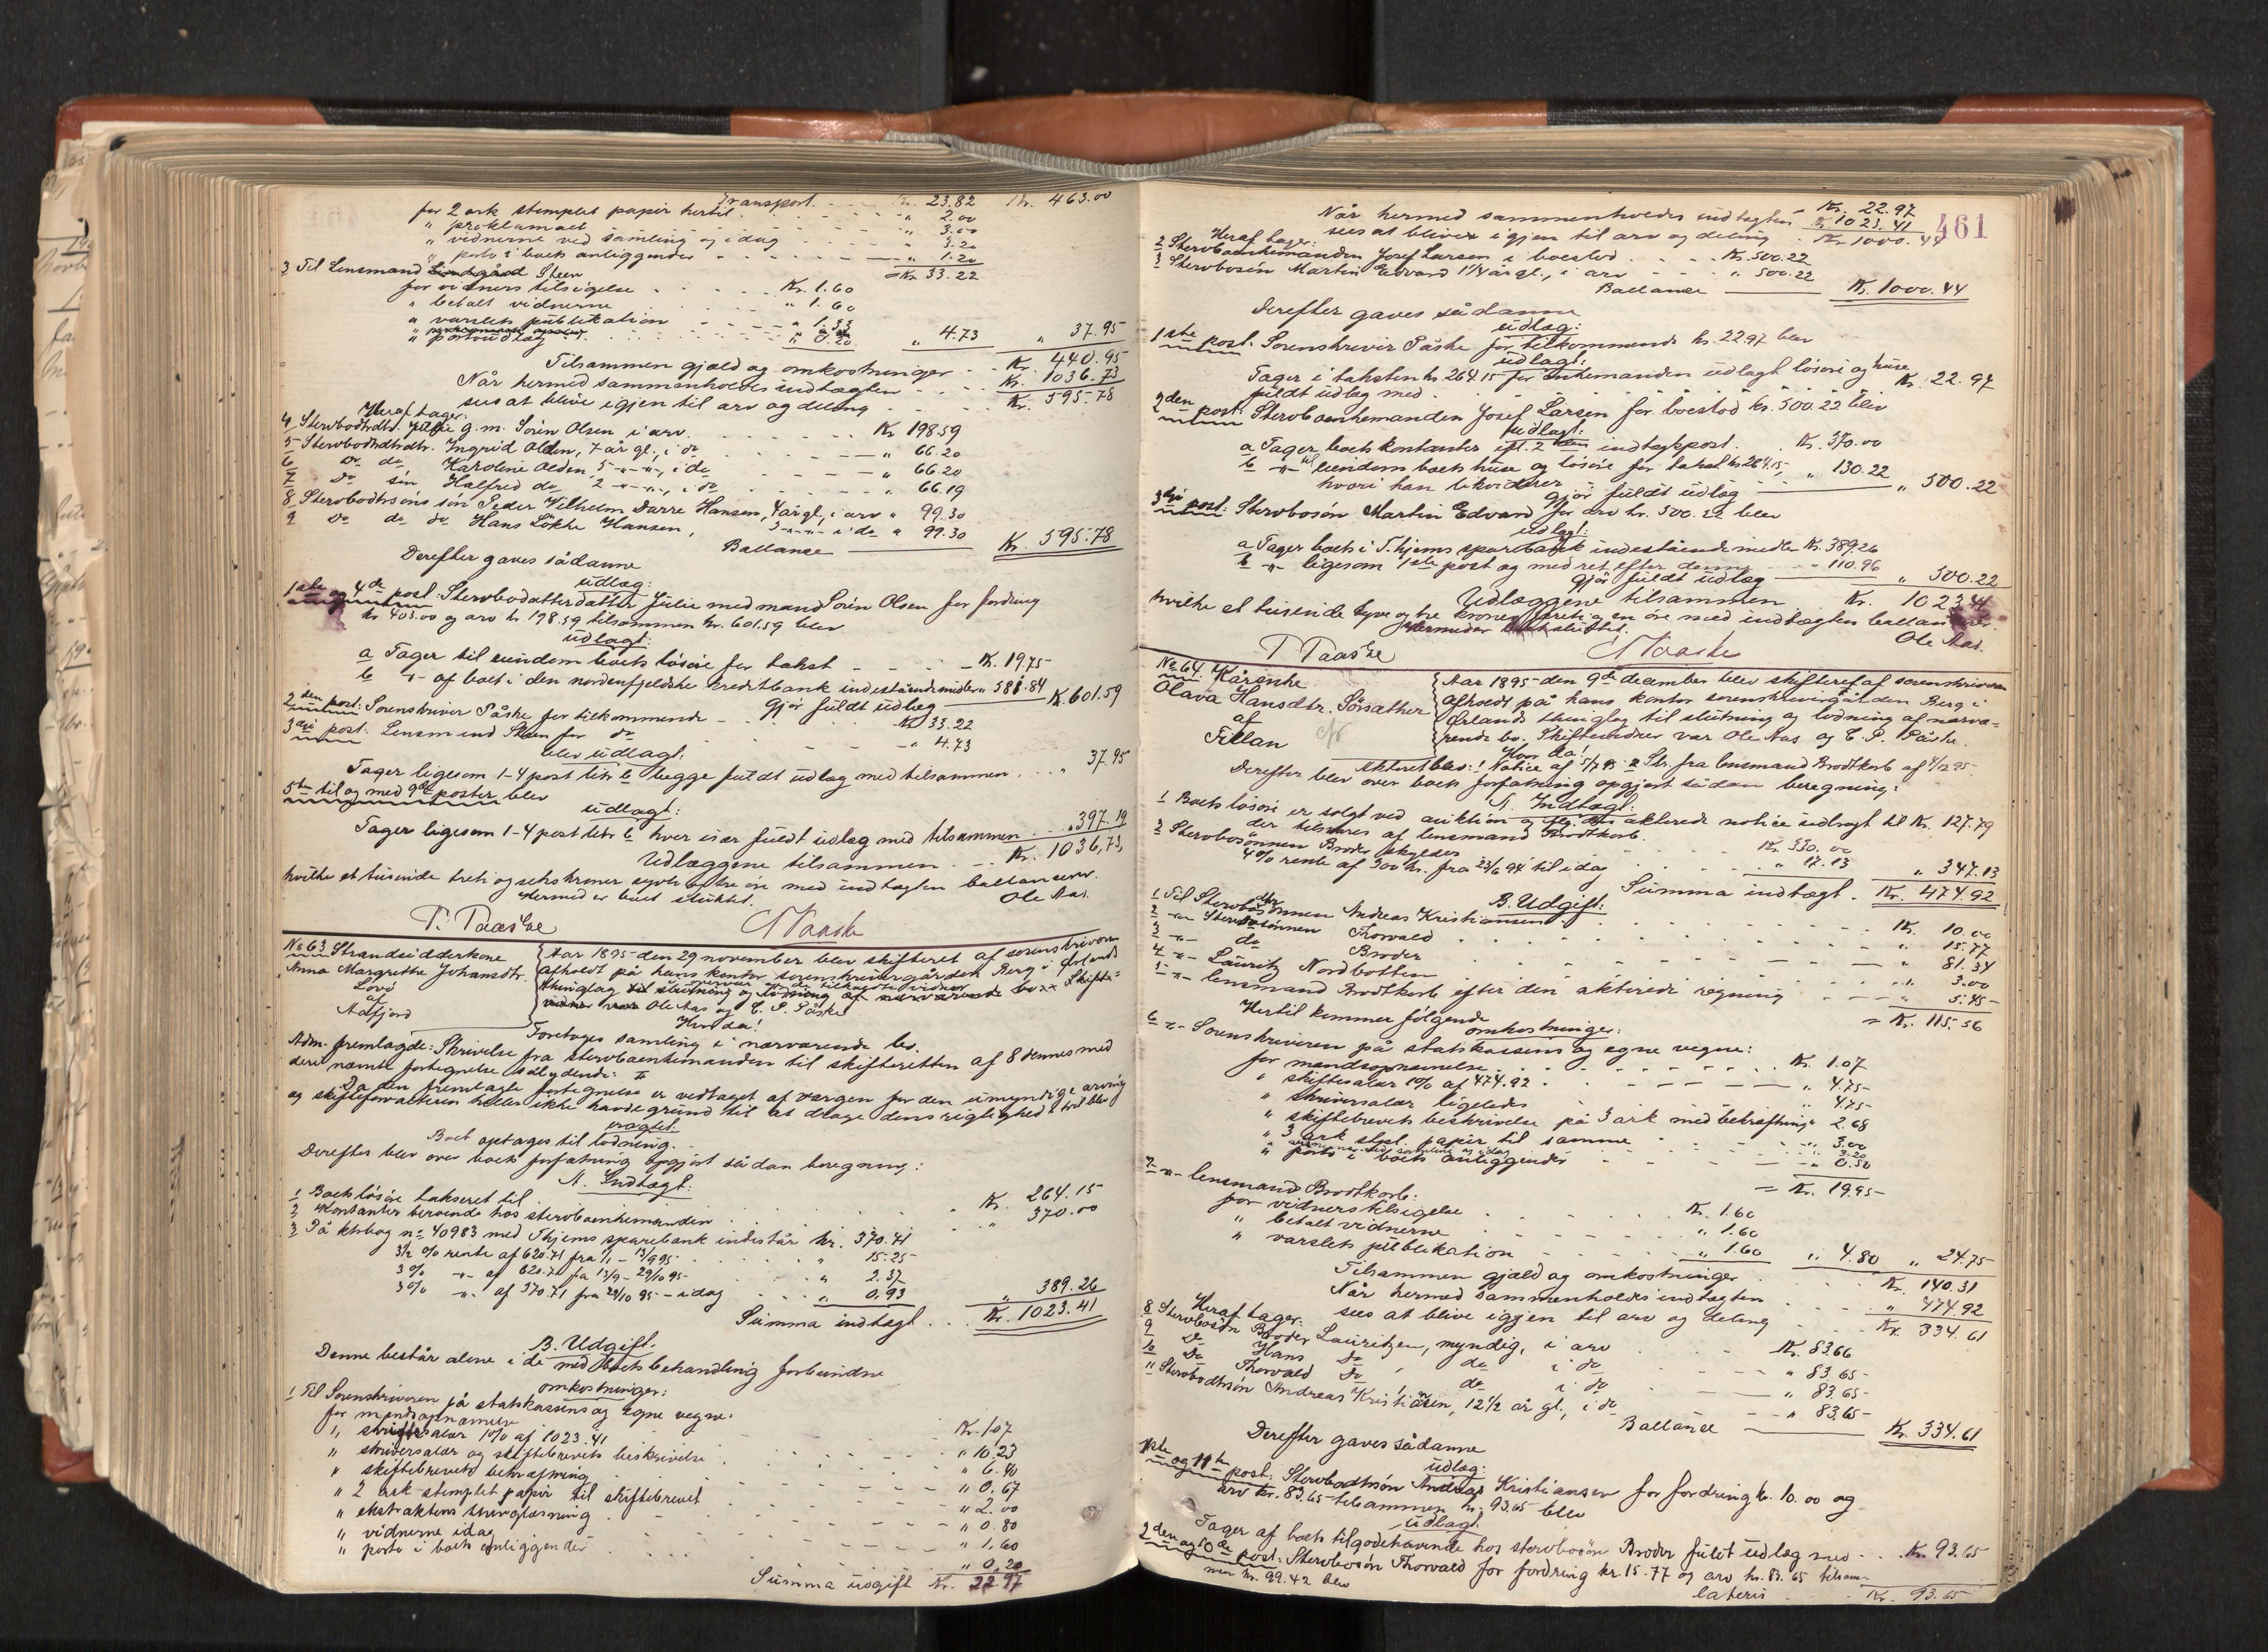 Transport. Kr. 23.82 Kr. 463.00
for 2 ark stemplet papir hertil " 2.00
" proklamaet " 3.00
" vidnerne ved samling og idag " 3.20
" porto i boets anliggender " 1.20
= Kr. 33.22
3 Til Lensmand Steen
for vidners tilsigelse Kr. 1.60
" betalt vidnerne " 1.60
" varslets publikation " 1.33
" portoudlæg " 0.20 " 4.73 " 37.95
Tilsammen gjæld og omkostninger Kr. 440.95
Når hermed sammenholdes indtægten Kr. 1036.73
sees at blive igjen til arv og deling Kr. 595.78
Heraf tager:
4 Stervbodtrdtr. Julie g.m. Sörén Olsen i arv Kr 198.59
5 Stervbodtrdtrdtr. Ingrid Olden, 7 år gl., i do " 66.20
6 Do do Karoline Olden 5 -"- -"-, i do " 66.20
7 Do sön Halfred do 2 -"- -"-, i do " 66.19
8 Stervbodtrsöns sön Peder Vilhelm Darre Hansen, 4 år gl., i arv " 99.30
9 Do do do Hans Lökke Hansen, 3 -"- -"- i do " 99.30
Ballance Kr. 595.78
Derefter gaves sådanne
udlæg:
1ste og 4de post: Stervbodatterdatter Julie med mand Sörén Olsen for fordring
kr. 403.00 og arv kr. 198.59 tilsammen kr. 601.59 blev
udlagt:
a Tager til eiendom boets lösöre for takst Kr. 19.75
b -"- af boet i den nordenfjeldske kreditbank indestående midler " 581.84
gjör fuldt udlæg K. 601.59
2den post: Sorenskriver Påske for tilkommende Kr 33.22
3die post: Lensmand Steen for do " 4.73
blev udlagt:
Tager ligesom 1-4 post litr b begge fuldt udlæg med tilsammen " 37.95
5te til og med 9de poster blev
udlagt:
Tager ligesom 1-4 post litr b hver især fuldt udlæg med tilsammen " 397.19
Udlæggene tilsammen Kr. 1036,73,
hvilke et tusinde treti og seks kroner sytti og tre öre med indtægten ballancerer.
Hermed er boet sluttet.
Ole Aas.
P. Paaske
Paaske
No 63 Strandsidderkone
Anna Margrethe Johansdtr.
Lovö
af
Aafjord
Aar 1895 den 29 november blev skifteret af sorenskriveren
afholdt på hans kontor sorenskrivergården Berg i Ørlands
thinglag
Ole Aas og C. P. Påske
Hvor da!
Foretoges samling i nærværende bo.
Adm. fremlagde: Skrivelse fra stervboenkemanden til skifteretten af 8 dennes med
deri nævnte fortegnelse sålydende:
Da den fremlagte fortegnelse er vedtaget af værgen for den umyndige arving
og skifteforvalteren heller ikke havde grund til at drage dens rigtighed i tvil blev
eragtet:
Boet optages til lodning.
Derefter blev over boets forfatning opgjort sådan beregning:
A. Indtægt:
1 Boets lösöre takseret til Kr. 264.15
2 Kontanter beroende hos stervboenkemanden " 370.00
3 På ktrbog no 40983 med Thjems sparebank indestår kr. 370.71
3½ % rente af 620.71 fra 1/1 - 13/9 95 " 15.25
3 % -"- af 620.71 fra 13/9 - 29/10 95 " 2.37
3 % -"- af 370.71 fra 29/10 95 - idag " 0.93 " 389.26
Summa indtægt Kr. 1023.41
B. Udgift.
Denne består alene i de med boets behandling forbundne
omkostninger:
1 Til Sorenskriveren på statskassens og egne vegne:
for mændsopnævnelse Kr. 1.07
" skiftesalær 1% af 1023.41 " 10.23
" skriversalær og skiftebrevets beskrivelse " 6.40
" skiftebrevets bekræftning " 0.67
" 2 ark stemplet papir til skiftebrevet " 2.00
" ekstraktens thinglæsning " 0.80
" vidnerne idag " 1.60
" porto i boets anliggender " 0.20
Summa udgift Kr. 22.97
461
Kr. 22.97
Når hermed sammenholdes indtægten Kr. 1023.41
sees at bliver igjen til arv og deling Kr. 1000.44
Heraf tager:
2 Stervboenkemanden Josef Larsen i boeslod Kr. 500.22
3 Stervbosön Martin Edvard 1¼ år gl., i arv " 500.22
Ballance Kr. 1000.44
Derefter gaves sådanne
udlæg:
1ste post. Sorenskriver Påske for tilkommende kr. 22.97 blev
udlagt:
Tager i taksten kr. 264.15 for enkemanden udlagt lösöre og huse
fuldt udlæg med Kr. 22.97
2den post: Stervboenkemanden Josef Larsen for boeslod kr. 500.22 blev
udlagt:
a Tager boets kontanter efl. 2 indtægtspost. Kr. 370.00
b -"- til eiendom boets huse og lösöre for takst kr 264.15, " 130.22
hvori han likviderer
gjör fuldt udlæg " 500.22
3die post: Stervbosön Martin Edvard for arv kr. 500.22 blev
udlagt:
a Tager boets i T.hjems sparebank indestående midler Kr. 389.26
b -"- ligesom 1ste post og med ret efter denne " 110.96
gjör fuldt udlæg " 500.22
Udlæggene tilsammen Kr. 1023.41
hvilke et tusinde tyve og tre kroner öre med indtægten ballancerer.
Hermed er boet sluttet.
Ole Aas.
P. Paaske
Paaske
No 64 Kårenke
Olava Hansdtr. Sörsæther
af
Fillan
Aar 1895 den 9de december blev skifteret af sorenskriveren
afholdt på hans kontor sorenskrivergården Berg i
Ørlands thinglag til slutning og lodning af nærvæ-
rende bo. Skiftevidner var Ole Aas og C. P. Påske.
Hvor da!
Akteret blev: Notice af 5/7 95 fra lensmand Brodtkorb af 4/12 95.
Derefter blev over boets forfatning opgjort sådan beregning:
A. Indtægt:
1 Boets lösöre er solgt ved auktion og akterede notice udragt til Kr. 127.79
der tilsvares af lensmand Brodtkorb.
2 Stervbosönnen Broder skylder Kr. 330.00
4% rente af 300 kr. fra 23/6 94 til idag " 17.13 " 347.13
Summa indtægt. Kr. 474.92
B. Udgift:
1 Til Stervbodtrsönnen Andreas Kristiansen Kr. 10.00
2 -"- Stervbosönnen Thorvald " 15.77
3 -"- do Broder " 81.34
4 -"- Lauritz Nordbotten " 3.00
5 -"- lensmand Brodtkorb efter den akterede regning " 5.45
= Kr. 115.56
Hertil kommer fölgende
omkostninger:
6 -"- Sorenskriveren på statskassens og egne vegne:
for mændsopnævnelse Kr. 1.07
" skiftesalær 1% af 474.92 " 4.75
" skriversalær ligeledes " 4.75
" skiftebrevets beskrivelse på 3 ark med bekræftning " 2.68
" 3 ark stpl. papir til samme " 3.00
" vidnerne ved samling og idag " 3.20
" porto i boets anliggender " 0.50
= Kr. 19.95
7 -"- lensmand Brodtkorb:
for vidners tilsigelse Kr. 1.60
" betalt vidnerne " 1.60
" varslets publikation " 1.60 " 4.80 " 24.75
Tilsammen gjæld og omkostninger Kr. 140.31
Når hermed sammenholdes indtægten " 474.92
sees at blive igjen til arv og deling Kr. 334.61
Heraf tager:
8 Stervbosön Broder Lauritzen, myndig, i arv Kr. 83.66
9 Do Hans do, do i do " 83.65
10 Do Thorvald do, do i do " 83.65
11 Stervbodtrsön Andreas Kristiansen, 12½ år gl., i do " 83.65
Ballance Kr. 334.61
Derefter gaves sådanne
udlæg:
1ste og 11te post: Stervbodtrsön Andreas Kristiansen for fordring kr. 10.00 og
arv kr. 83.65 tilsammen kr. 93.65 blev
udlagt
Tager af boets tilgodehavende hos stervbosön Broder fuldt udlæg med Kr. 93.65
2den og 10de post: Stervbosön Thorvald for fordring kr. 15.77 og arv kr. 83.65 tilsam-
men kr. 99.42 blev
lateris Kr. 93.65